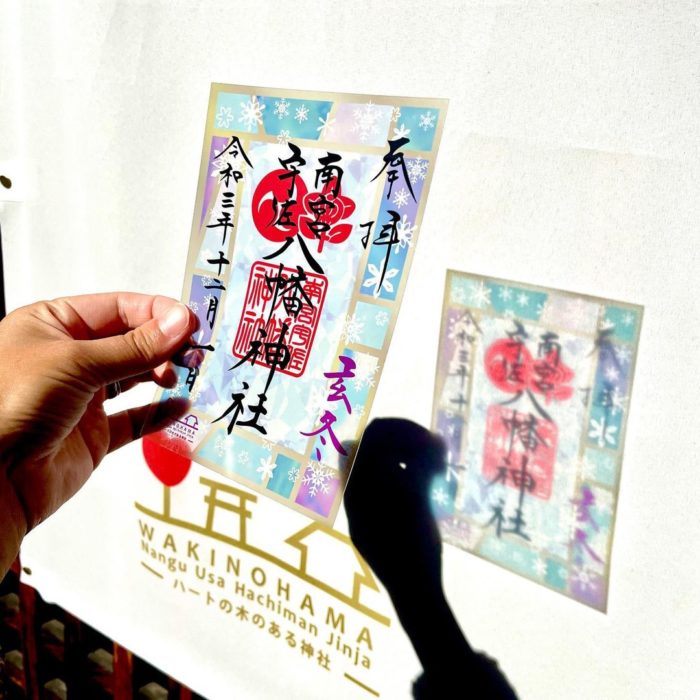 奉拝
南宮
宇佐
八幡神社
玄冬
令和三年十二月一日
WAKINOHAMA
Nangu Usa Hachiman Jinja
ハートの木のある神社
奉拝
南宮
宇佐
八幡神社
玄冬
令和三年十